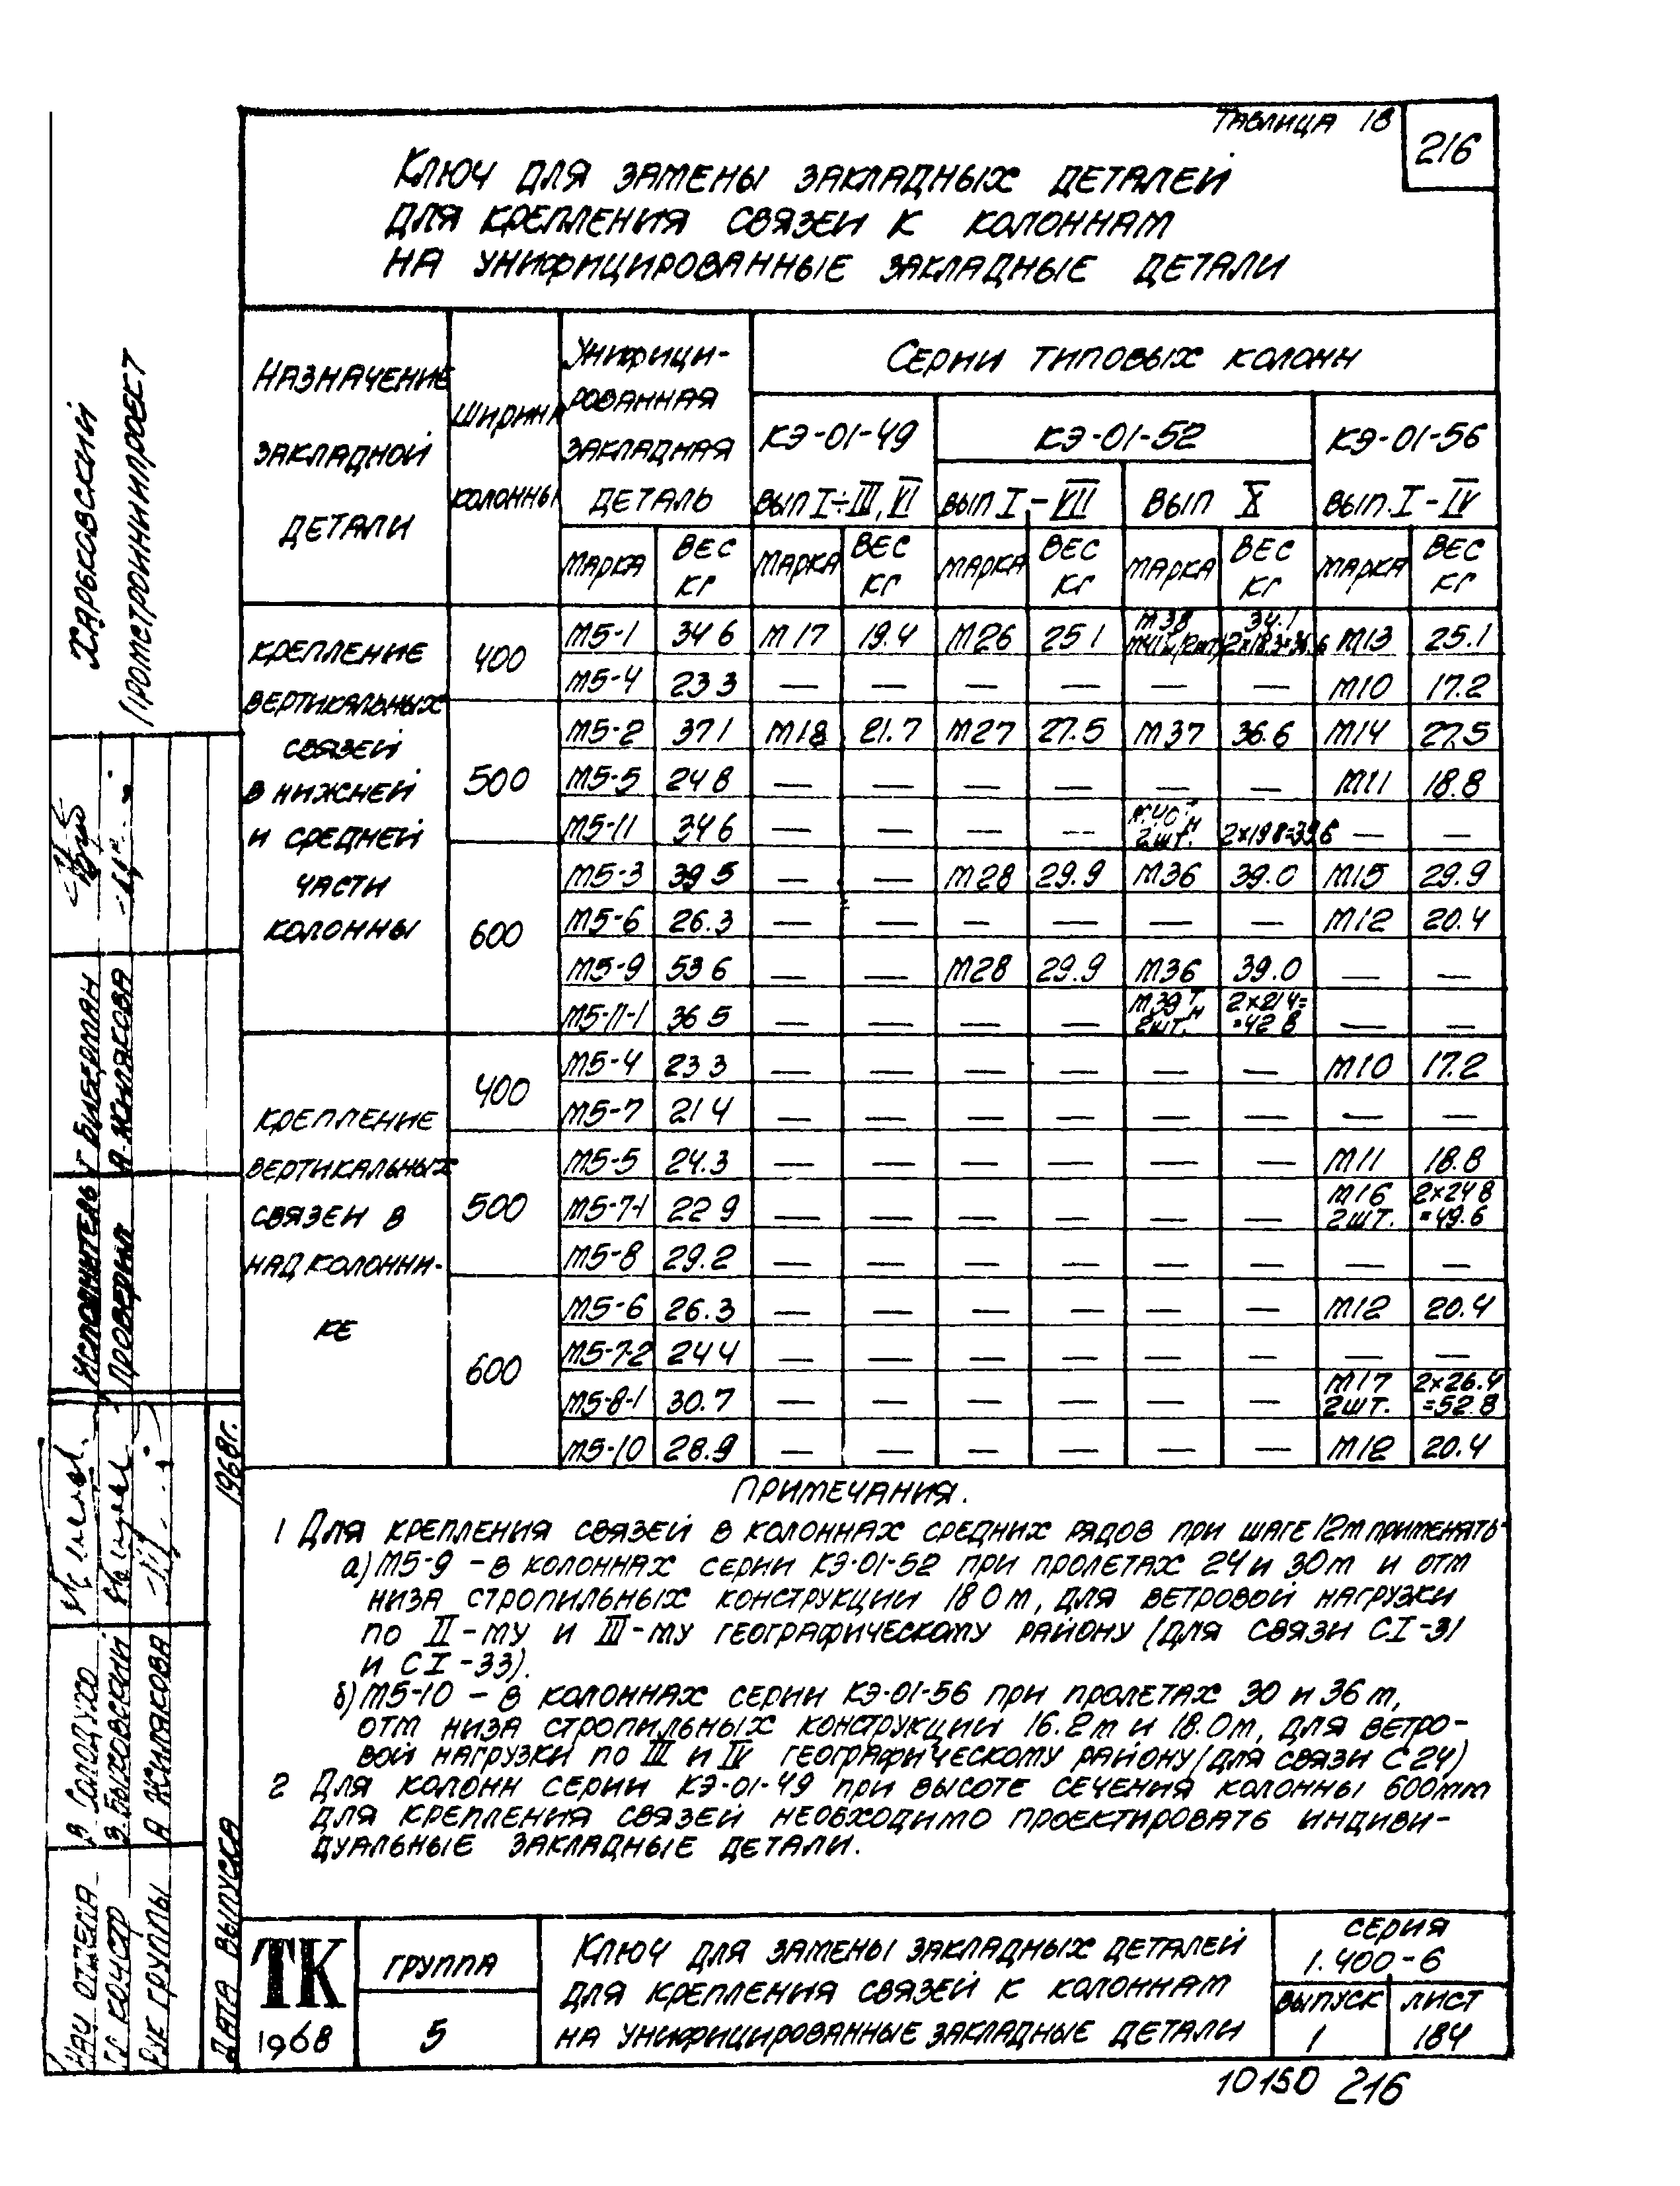 Таблица 18
216
Ключ для замены закладных деталей
для крепления связей к колоннам
на унифицированные закладные детали
Назначение закладной детали
Ширина колонны
Унифици-
рованная
закладная
деталь
Серии типовых колонн
КЭ-01-49 КЭ-01-52 КЭ-01-56
вып I÷III, VI вып I-VII вып X вып. I-IV
марка вес кг марка вес кг марка вес кг марка вес кг марка вес кг
Крепление
вертикальных
связей
в нижней
и средней
части
колонны
400
М5-1 34 6 М17 19.4 М26 25 1 М38 34.1 М13 25.1
М5-4 23 3 — — — — — — М10 17.2
500
М5-2 37 1 М18 21.7 М27 27.5 М37 36.6 М14 27.5
М5-5 24 8 — — — — — — М11 18.8
М5-11 34 6 — — — — М40 т н 2шт. 2×19 8=39 6 — —
600
М5-3 39 5 — — М28 29.9 М36 39.0 М15 29.9
М5-6 26.3 — — — — — — М12 20.4
М5-9 53 6 — — М28 29.9 М36 39.0 — —
М5-11-1 36 5 — — — — М39 т н 2шт. 2×21 4= =42 8 — —
Крепление
вертикальных
связен в
надколонни-
ке
400
М5-4 23 3 — — — — — — М10 17.2
М5-7 21 4 — — — — — — — —
500
М5-5 24.3 — — — — — — М11 18.8
М5-7-1 22 9 — — — — — — М16 2шт. 2×24 8 =49.6
М5-8 29.2 — — — — — — — —
600
М5-6 26.3 — — — — — — М12 20.4
М5-7-2 24 4 — — — — — — — —
М5-8-1 30.7 — — — — — — М17 2шт. 2×26.4 =52.8
М5-10 28.9 — — — — — — М12 20.4
Примечания.
1 Для крепления связей в колоннах средних рядов при шаге 12м применять
а) М5-9 – в колоннах серии КЭ-01-52 при пролетах 24 и 30м и отм
низа стропильных конструкции 18 0м, для ветровой нагрузки
по II-му и III-му географическому району (для связи CI-31
и CI-33).
б) М5-10 – в колоннах серии КЭ-01-56 при пролетах 30 и 36 м,
отм низа стропильных конструкций 16.2м и 18.0м, для ветро-
вой нагрузки по III и IV географическому району (для связи С 24)
2 Для колонн серии КЭ-01-49 при высоте сечения колонны 600мм
для крепления связей необходимо проектировать индиви-
дуальные закладные детали.
ТК
1968
группа
5
Ключ для замены закладных деталей
для крепления связей к колоннам
на унифицированные закладные детали
серия
1.400-6
выпуск лист
1 184
10150 216
Харьковский
Промстройниипроект
Исполнитель Г Биберман
Проверил А. Жилякова
Нач отдела В Солодухо
Гл констр З. Быховский
Рук группы А Жилякова
Дата выпуска 1968г.